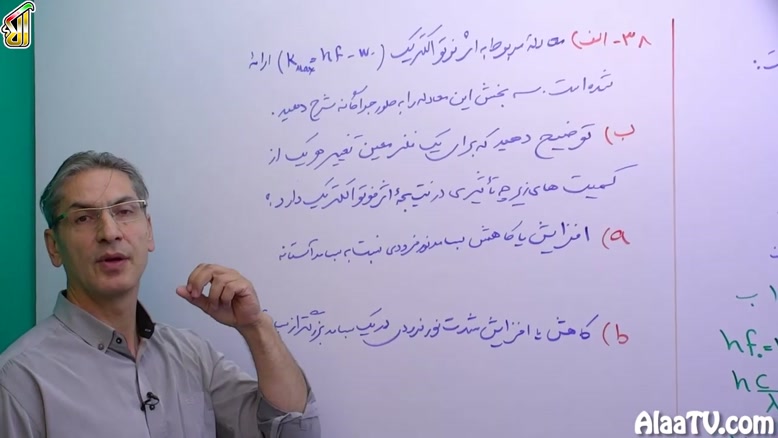 ۳۸- الف) معادلهٔ مربوط به اثر فوتوالکتریک (Kmax = hf - W₀) ارائه
شده است. سه بخش این معادله را به طور جداگانه شرح دهید.
ب) توضیح دهید که برای یک فلز معین تغییر هر یک از
کمیت های زیر چه تأثیری در نتیجهٔ اثر فوتوالکتریک دارد؟
a) افزایش یا کاهش بسامد نور فرودی نسبت به بسامد آستانه
b) کاهش یا افزایش شدت نور فرودی در یک بسامد بزرگتر از
ب
hf₀ =
h c/λ
AlaaTV.com